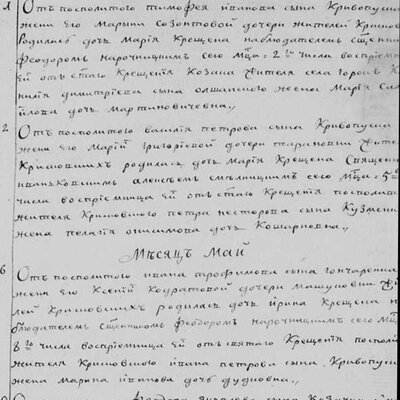 1 Отъ посполитого тимофея иванова сына Кривопуса
жени его Марини Созонтовой дочери жителей Крисков
Родилась дочъ Марія Крещена наблюдателемъ Сщенни
Феодоромъ нарочницкимъ сего Мца = 2го числа воспріем
Ей отъ стаго Крещенія Козака жителя села
димитріева сына жена Марія
дочъ Мартиновичевна
2 Отъ посполитого василія петрова сына Кривопуса
жени его Маріи григоріевой дочери жите
Крисковскихъ родилась дочъ Марія Крещена Священн
алексѣемъ сего Мца = 5го
числа воспріемница Ей отъ стаго Крещенія поспол
жителя Крисковского петра нестерова сына Кузмен
жена пелагія дочъ
Мѣсяцъ Май
6 Отъ посполитого ивана трофимова сына гончаренка
жени его Ксеніи Кодратовой дочери
лей Крисковскихъ родилась дочъ ирина Крещена н
блюдателемъ Сщенникомъ Феодоромъ нарочницкимъ сего Мц
8го числа воспріемница Ей отъ святаго Крещенія поспол
жителя Крисковского ивана петрова сына Кривопус
жена Марина иванова дочъ